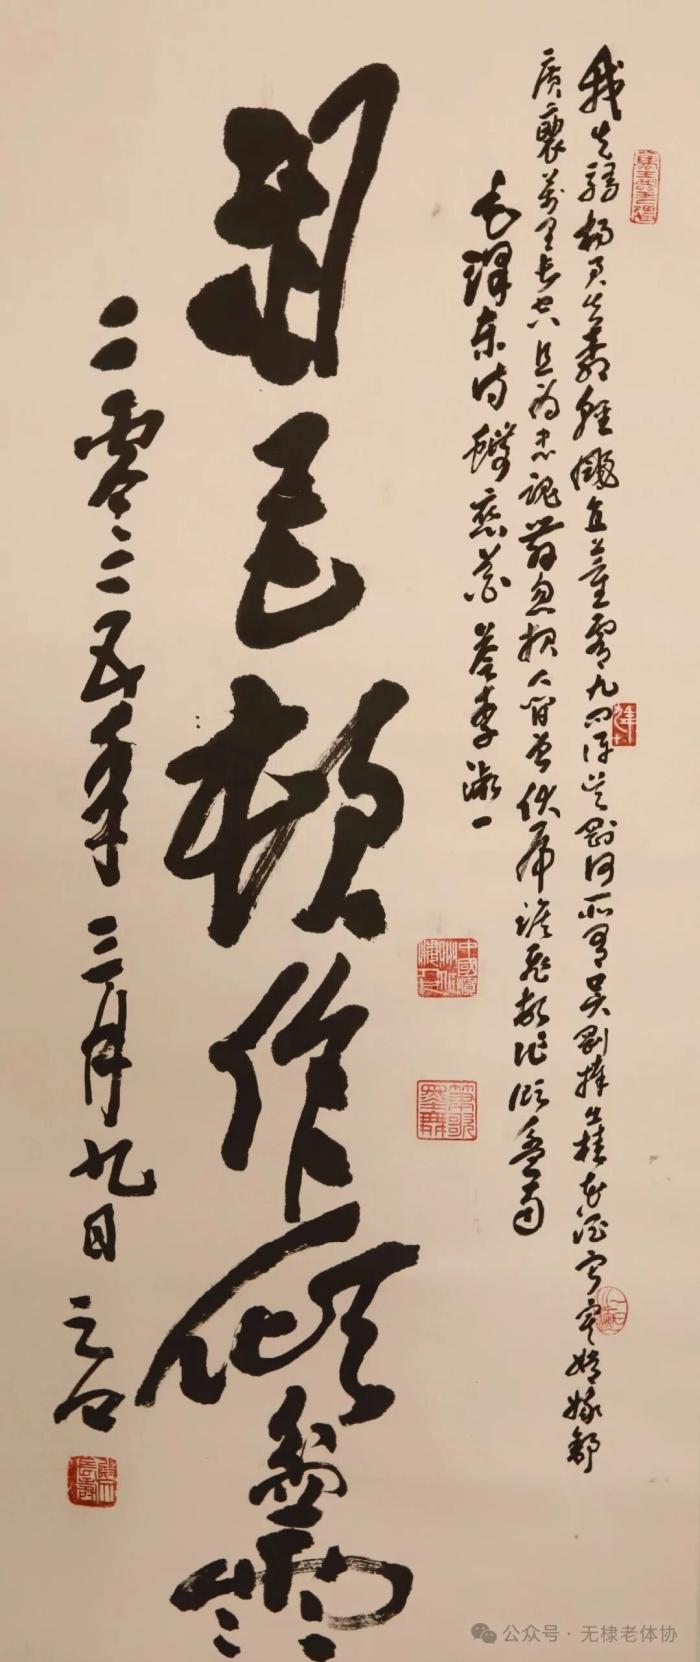 我失骄杨君失柳轻飏直上重霄九问讯吴刚何所有吴刚捧出桂花酒寂寞嫦娥舒
广袖万里长空且为忠魂舞忽报人间曾伏虎泪飞顿作倾盆雨
毛泽东诗蝶恋花答李淑一
泪飞顿作倾盆雨
二零二五年三月九日
公众号·无棣老体协